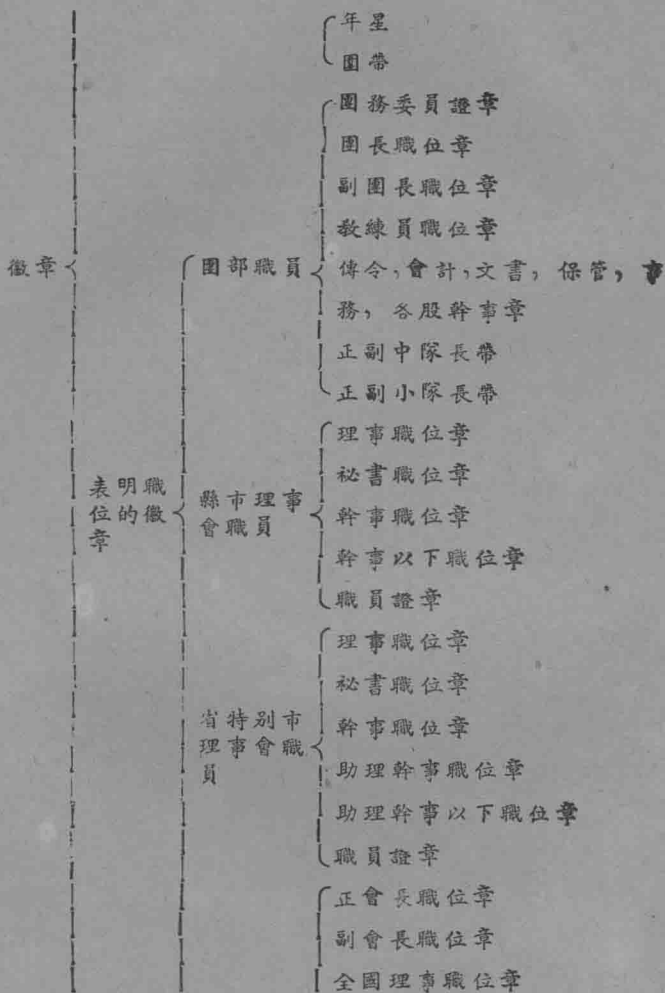 年星
團帶
團務委員證章
團長職位章
副團長職位章
教練員職位章
徽章
團部職員
傳令,會計,文書,保管,事
務,各股幹事章
正副中隊長帶
正副小隊長帶
表明職
位的徽
章
縣市理事
會職員
理事職位章
祕書職位章
幹事職位章
幹事以下職位章
職員證章
省特別市
理事會職
員
理事職位章
祕書職位章
幹事職位章
助理幹事職位章
助理幹事以下職位章
職員證章
正會長職位章
副會長職位章
全國理事職位章